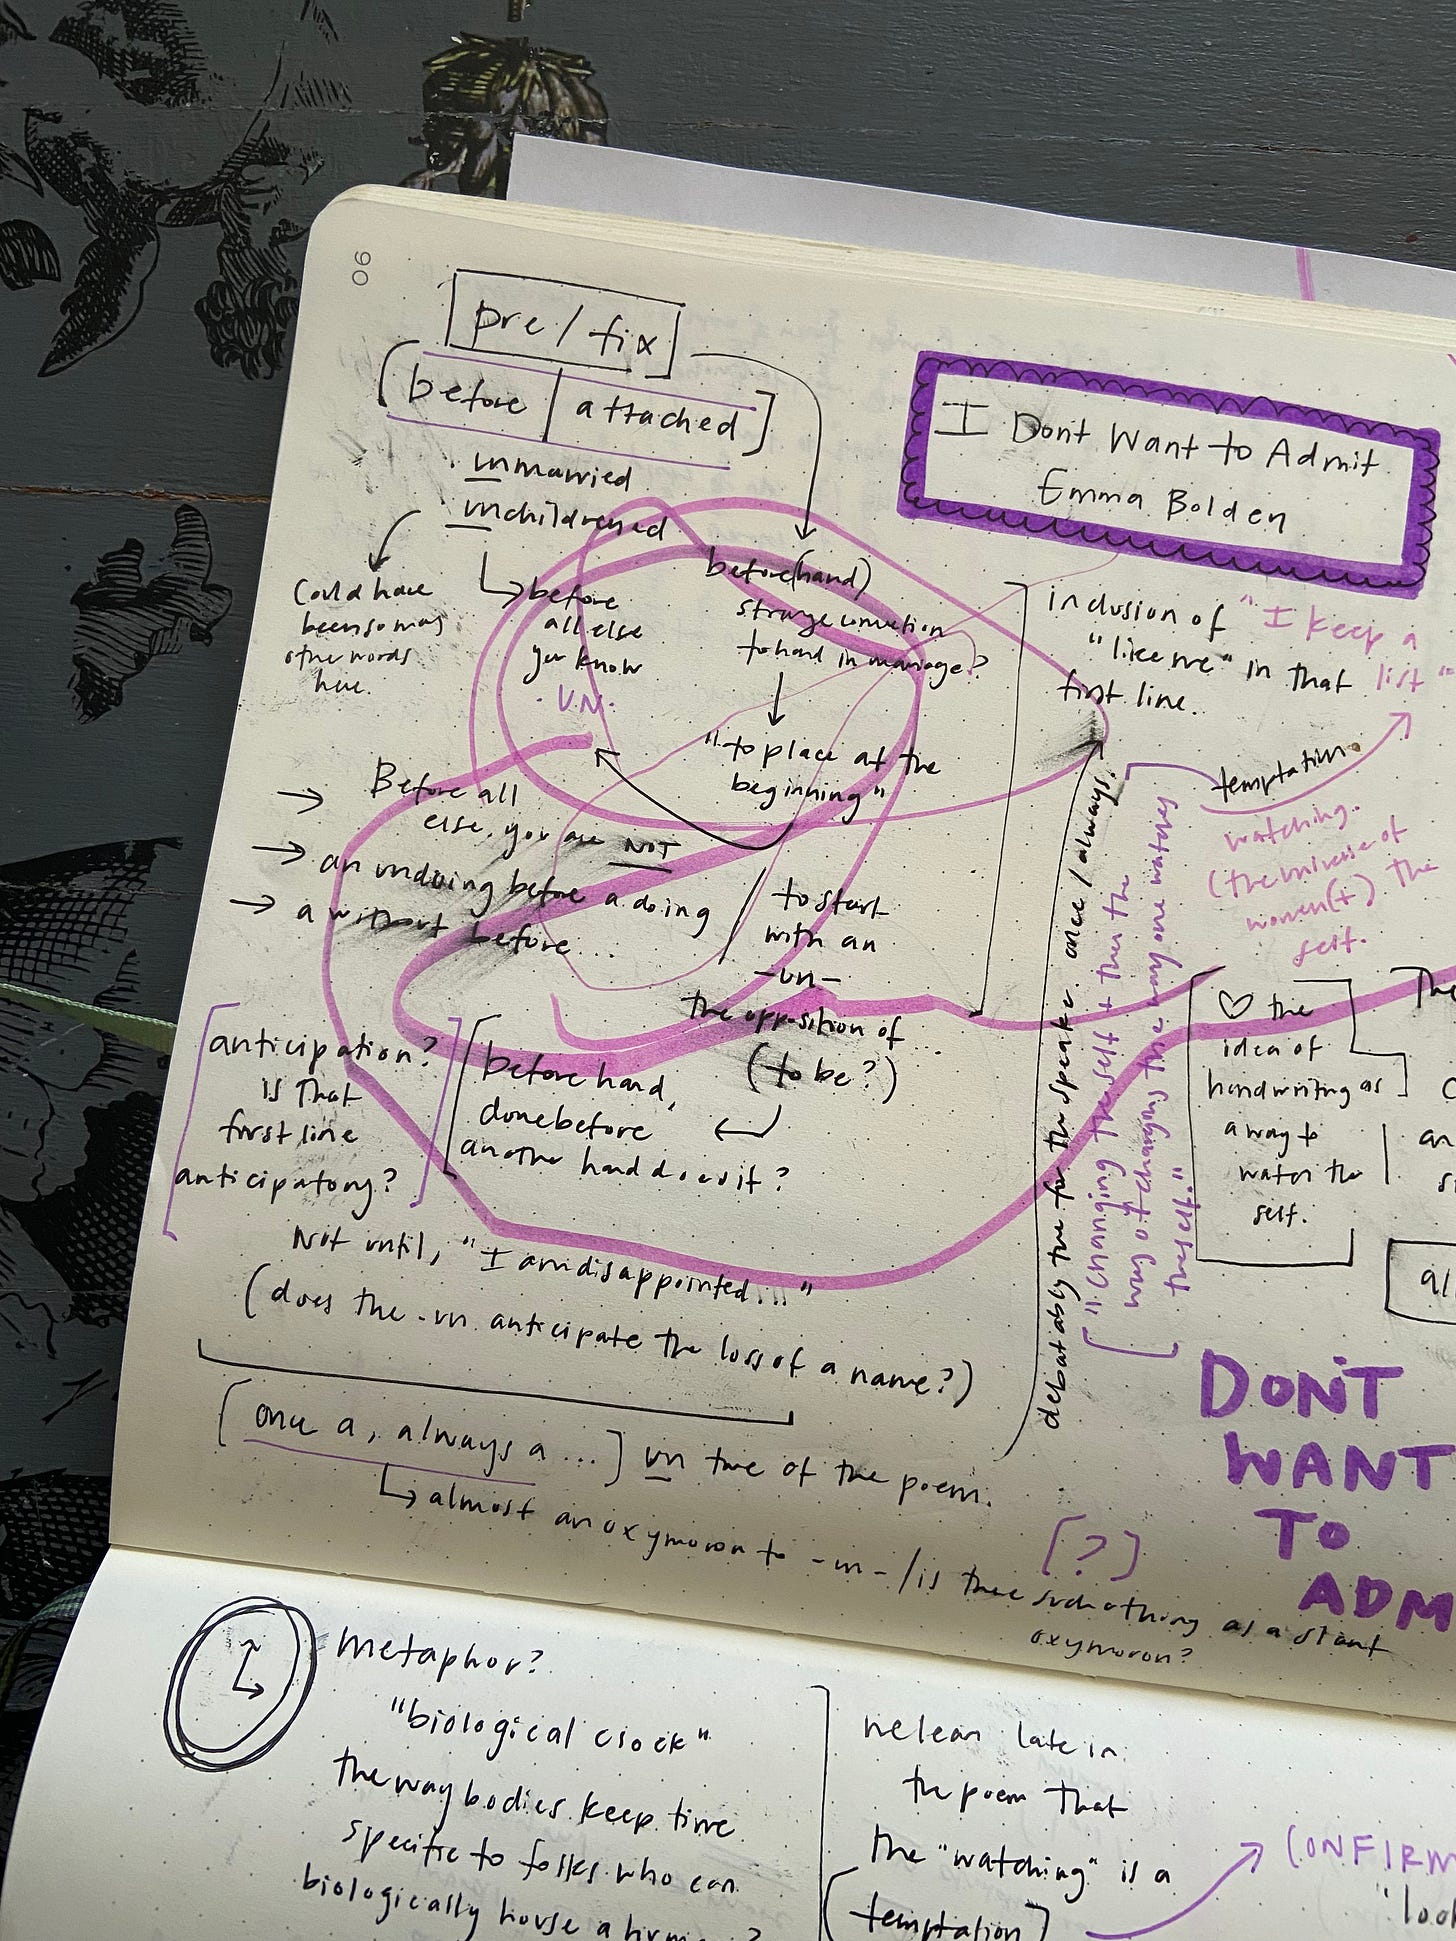 06
pre/fix
before | attached
unmarried
unchildressed
Could have
been so many
other words
here.
before
all else
you know
.UN.
before(hand)
strange connection
to hand in marriage?
"to place at the
beginning"
→ Before all
else, you are NOT
→ an undoing before a doing
→ a without before...
to start
with an
-un-
the opposition of
(to be?)
before hand,
done before
another hand does it?
[anticipation?
is that
first line
anticipatory?]
Not until, "I am disappointed..."
(does the -un anticipate the loss of a name?)
[once a, always a ...] un true of the poem.
↳ almost an oxymoron to -un-/is there such a thing as a slant
oxymoron?
[?]
I Dont Want to Admit
Emma Bolden
inclusion of "I keep a
"like me" in that list"
first line.
temptation
watching.
(the universe of
women(t) the
self.
debatably true for the speaker. once/always.
["changing the self + thus the
way of changing the way one watches
the self."]
♡ the
idea of
handwriting as
a way to
water the
self.
The
an
al
DON'T
WANT
TO
ADM
metaphor?
"biological clock"
the way bodies keep time
specific to folks who can
biologically house a
we lean late in
the poem that
the "watching" is a
(temptation)
CONFIRM
"loo